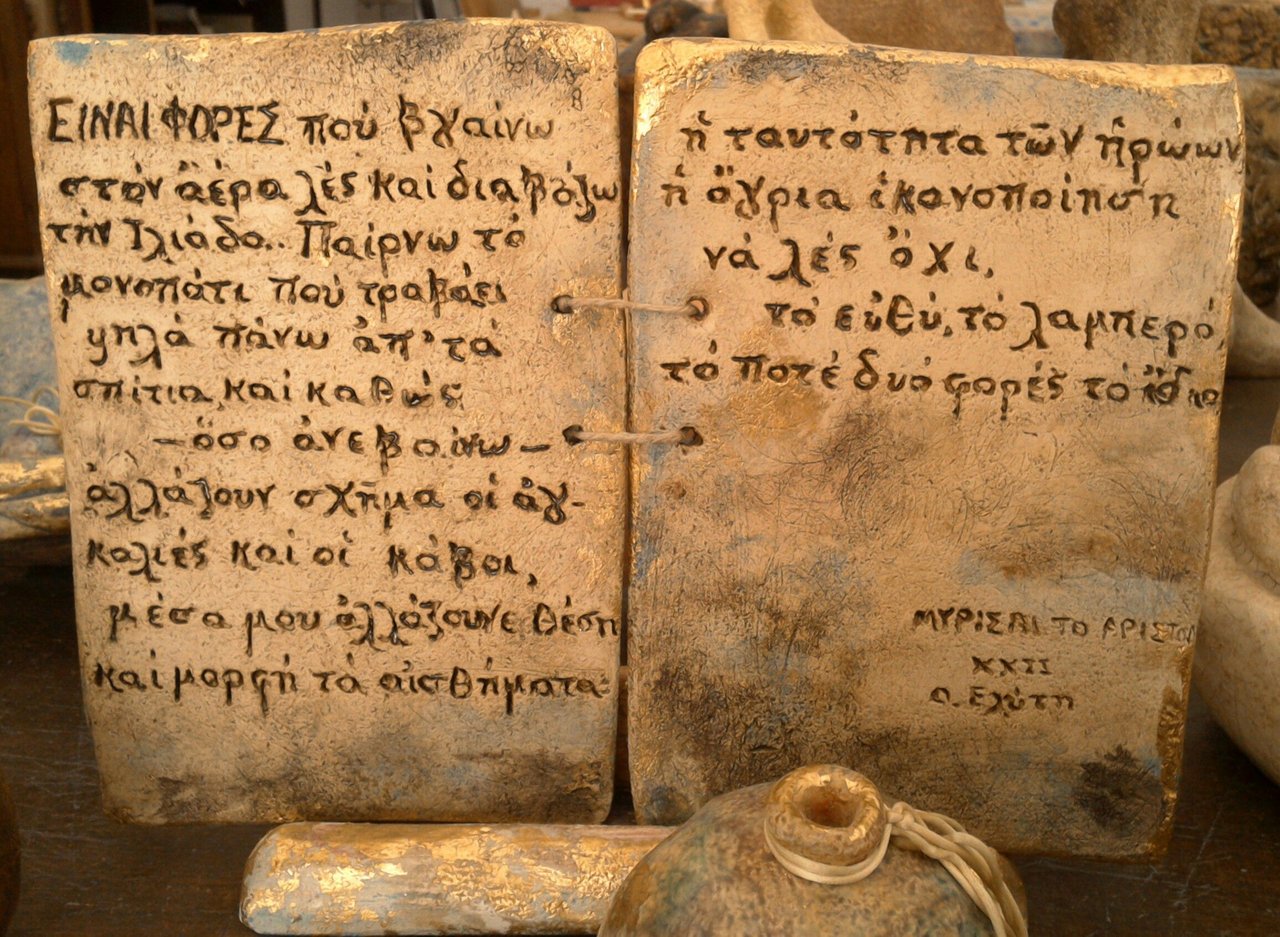 ΕΙΝΑΙ ΦΟΡΕΣ πού βγαίνω
στόν ἀέρα λές καί διαβάζω
τήν Ἰλιάδα.. Παίρνω τό
μονοπάτι πού τραβάει
ψηλά πάνω ἀπ' τά
σπίτια, καί καθώς
—ὅσο ἀνεβαίνω—
ἀλλάζουν σχῆμα οἱ ἀγ-
καλιές καί οἱ κάβοι,
μέσα μου ἀλλάζουνε θέση
καί μορφή τά αἰσθήματα:
ἡ ταυτότητα τῶν ἡρώων
ἡ ἄγρια ἱκανοποίηση
νά λές ὄχι,
τό εὐθύ, τό λαμπερό,
τό ποτέ δυό φορές τό ἴδιο
ΜΥΡΙΣΑΙ ΤΟ ΑΡΙΣΤΟΝ
XXII
Ο. Ελύτη